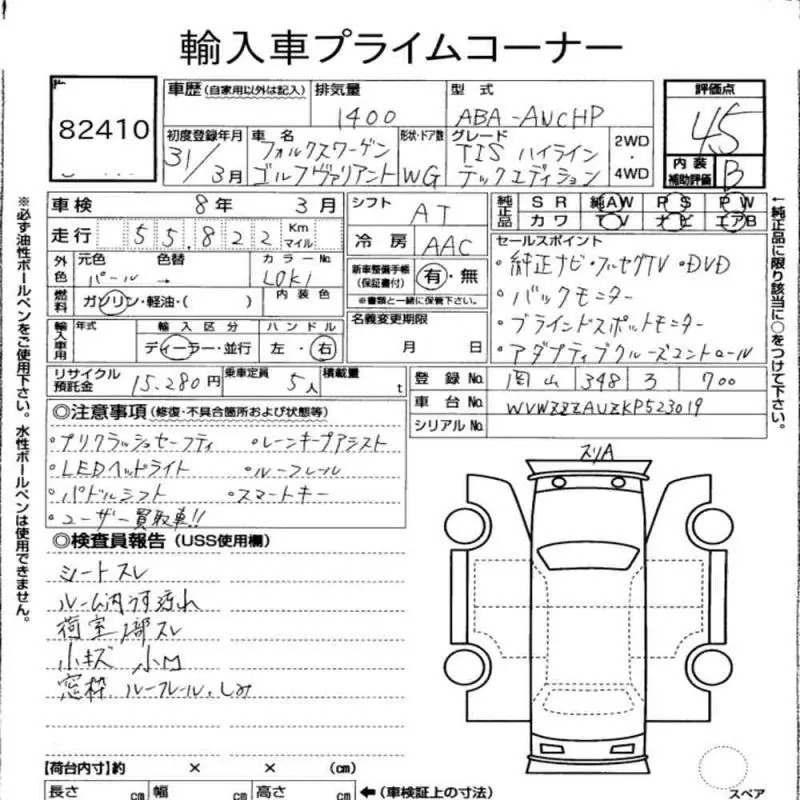 輸入車プライムコーナー
82410
車歴 (自家用以外は記入)
排気量 1400
型式 ABA-AUCHP
評価点 4.5
内装補助評価 B
初度登録年月 31/3月
車名 フォルクスワーゲン
ゴルフヴァリアント
形状・ドア数 WG
グレード TIS ハイライン
テックエディション
2WD・4WD
車検 8年 3月
走行 55,822 Km マイル
シフト AT
冷房 AAC
純正品 SR 純AW PS PW
カワ TV ナビ エアB
外色 元色 パール 色替 → カラーNo. LOK1
燃料 ガソリン・軽油・( ) 内装色
新車整備手帳(保証書付) 有・無
※書類と一緒に保管下さい。
セールスポイント
・純正ナビ・フルセグTV ・DVD
・バックモニター
・ブラインドスポットモニター
・アダプティブクルーズコントロール
輸入車用 年式 輸入区分 ディーラー・並行 ハンドル 左・右
名義変更期限 月 日
リサイクル預託金 15,280円 乗車定員 5人 積載量 t
登録No. 岡山 348 ろ 700
車台No. WVWZZZAUZKP523019
シリアルNo.
◎注意事項(修復・不具合箇所および状態等)
・プリクラッシュセーフティ ・レーンキープアシスト
・LEDヘッドライト ・ルーフレール
・パドルシフト ・スマートキー
・ユーザー買取車!!
◎検査員報告(USS使用欄)
シートスレ
ルーム内うす汚れ
荷室1部スレ
小キズ 小凹
窓枠 ルーフレール、しみ
スリA
【荷台内寸】約 × × (cm)
長さ cm 幅 cm 高さ cm ←(車検証上の寸法)
スペア
※必ず油性ボールペンをご使用下さい。水性ボールペンは使用できません。
←純正品に限り該当に○をつけて下さい。